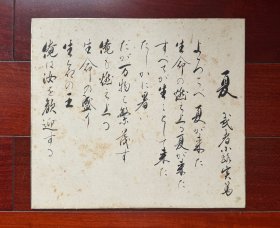 夏
武者小路実篤
よろこべ 夏が来た
生命の燃え上る夏が来た
すべてが生々として来た
たしかに暑い
だが万物は繁茂す
俺も燃え上る
生命の盛り
生命の王
俺は汝を歓迎する